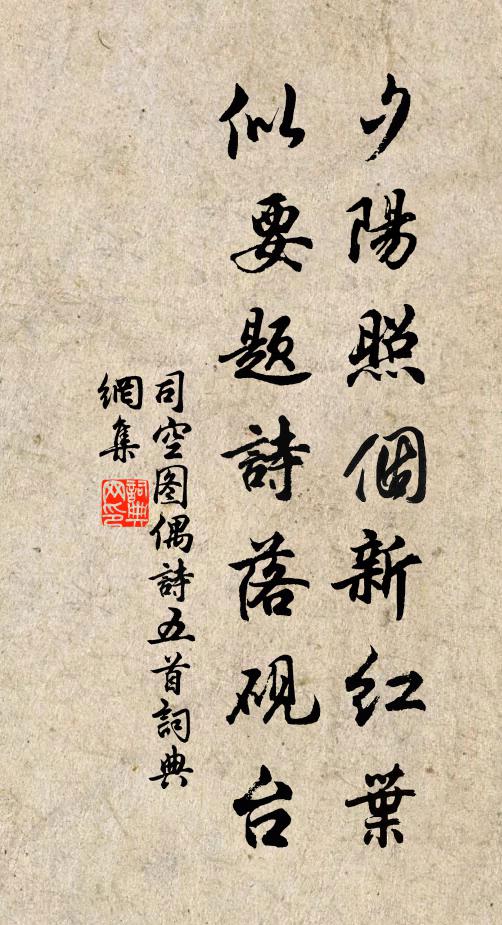 夕陽照個新紅葉
似要題詩落硯台
司空图偶詩五首詞典
網集
詞典
网印